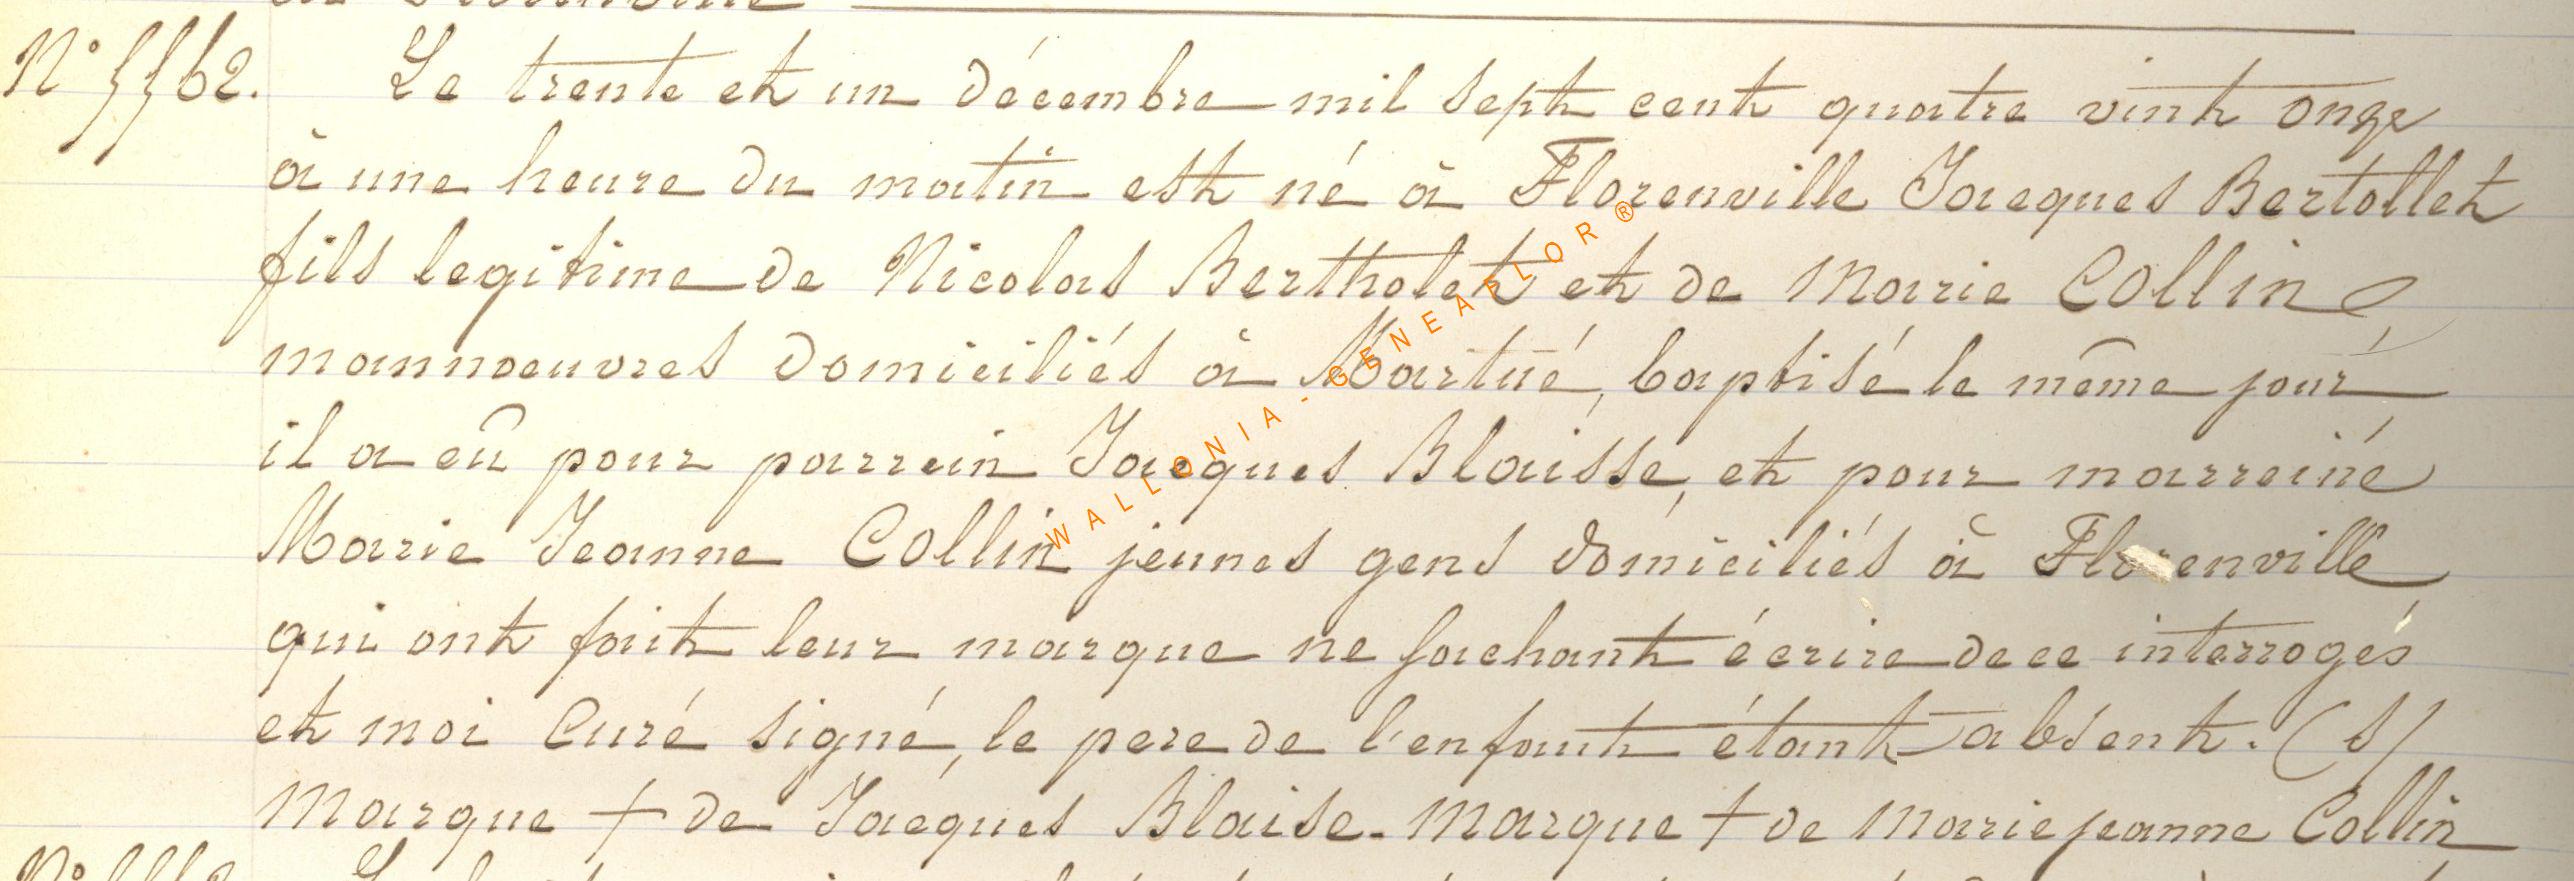 N° 5562. Le trente et un décembre mil sept cent quatre vint onze
à une heure du matin est né à Florenville Jacques Bertollet
fils legitime de Nicolas Bertholet et de Marie Collin
mannoeuvres domiciliés à Martué, baptisé le même jour
il a eû pour parrein Jacques Blaisse, et pour marreine
Marie Jeanne Collin jeunes gens domiciliés à Florenville
qui ont fait leur marque ne sachant écrire de ce interrogés
et moi Curé signé, le pere de l'enfant étant absent. (s)
Marque + de Jacques Blaise. Marque + de Marie jeanne Collin
WALLONIA - GENEAFLOR ®